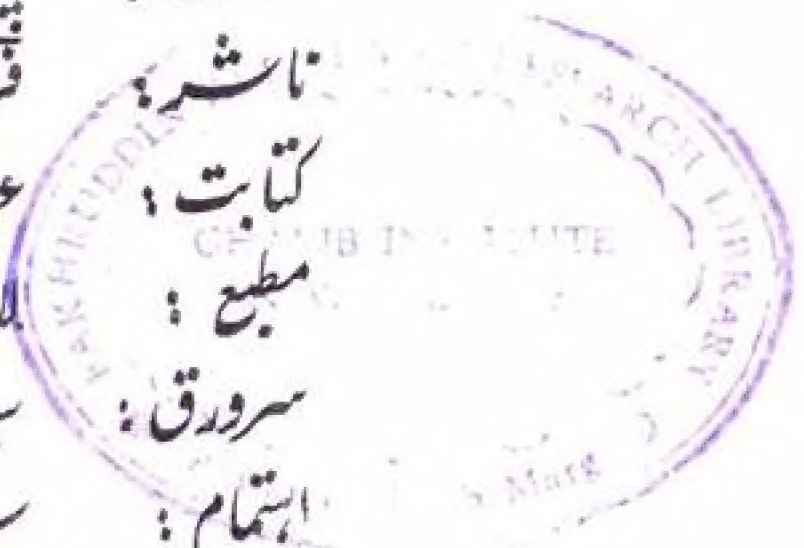 ناشر :
کتابت :
مطبع :
سرورق :
اہتمام :
FAKHRUDDIN
RESEARCH LIBRARY
GHALIB INSTITUTE
Marg